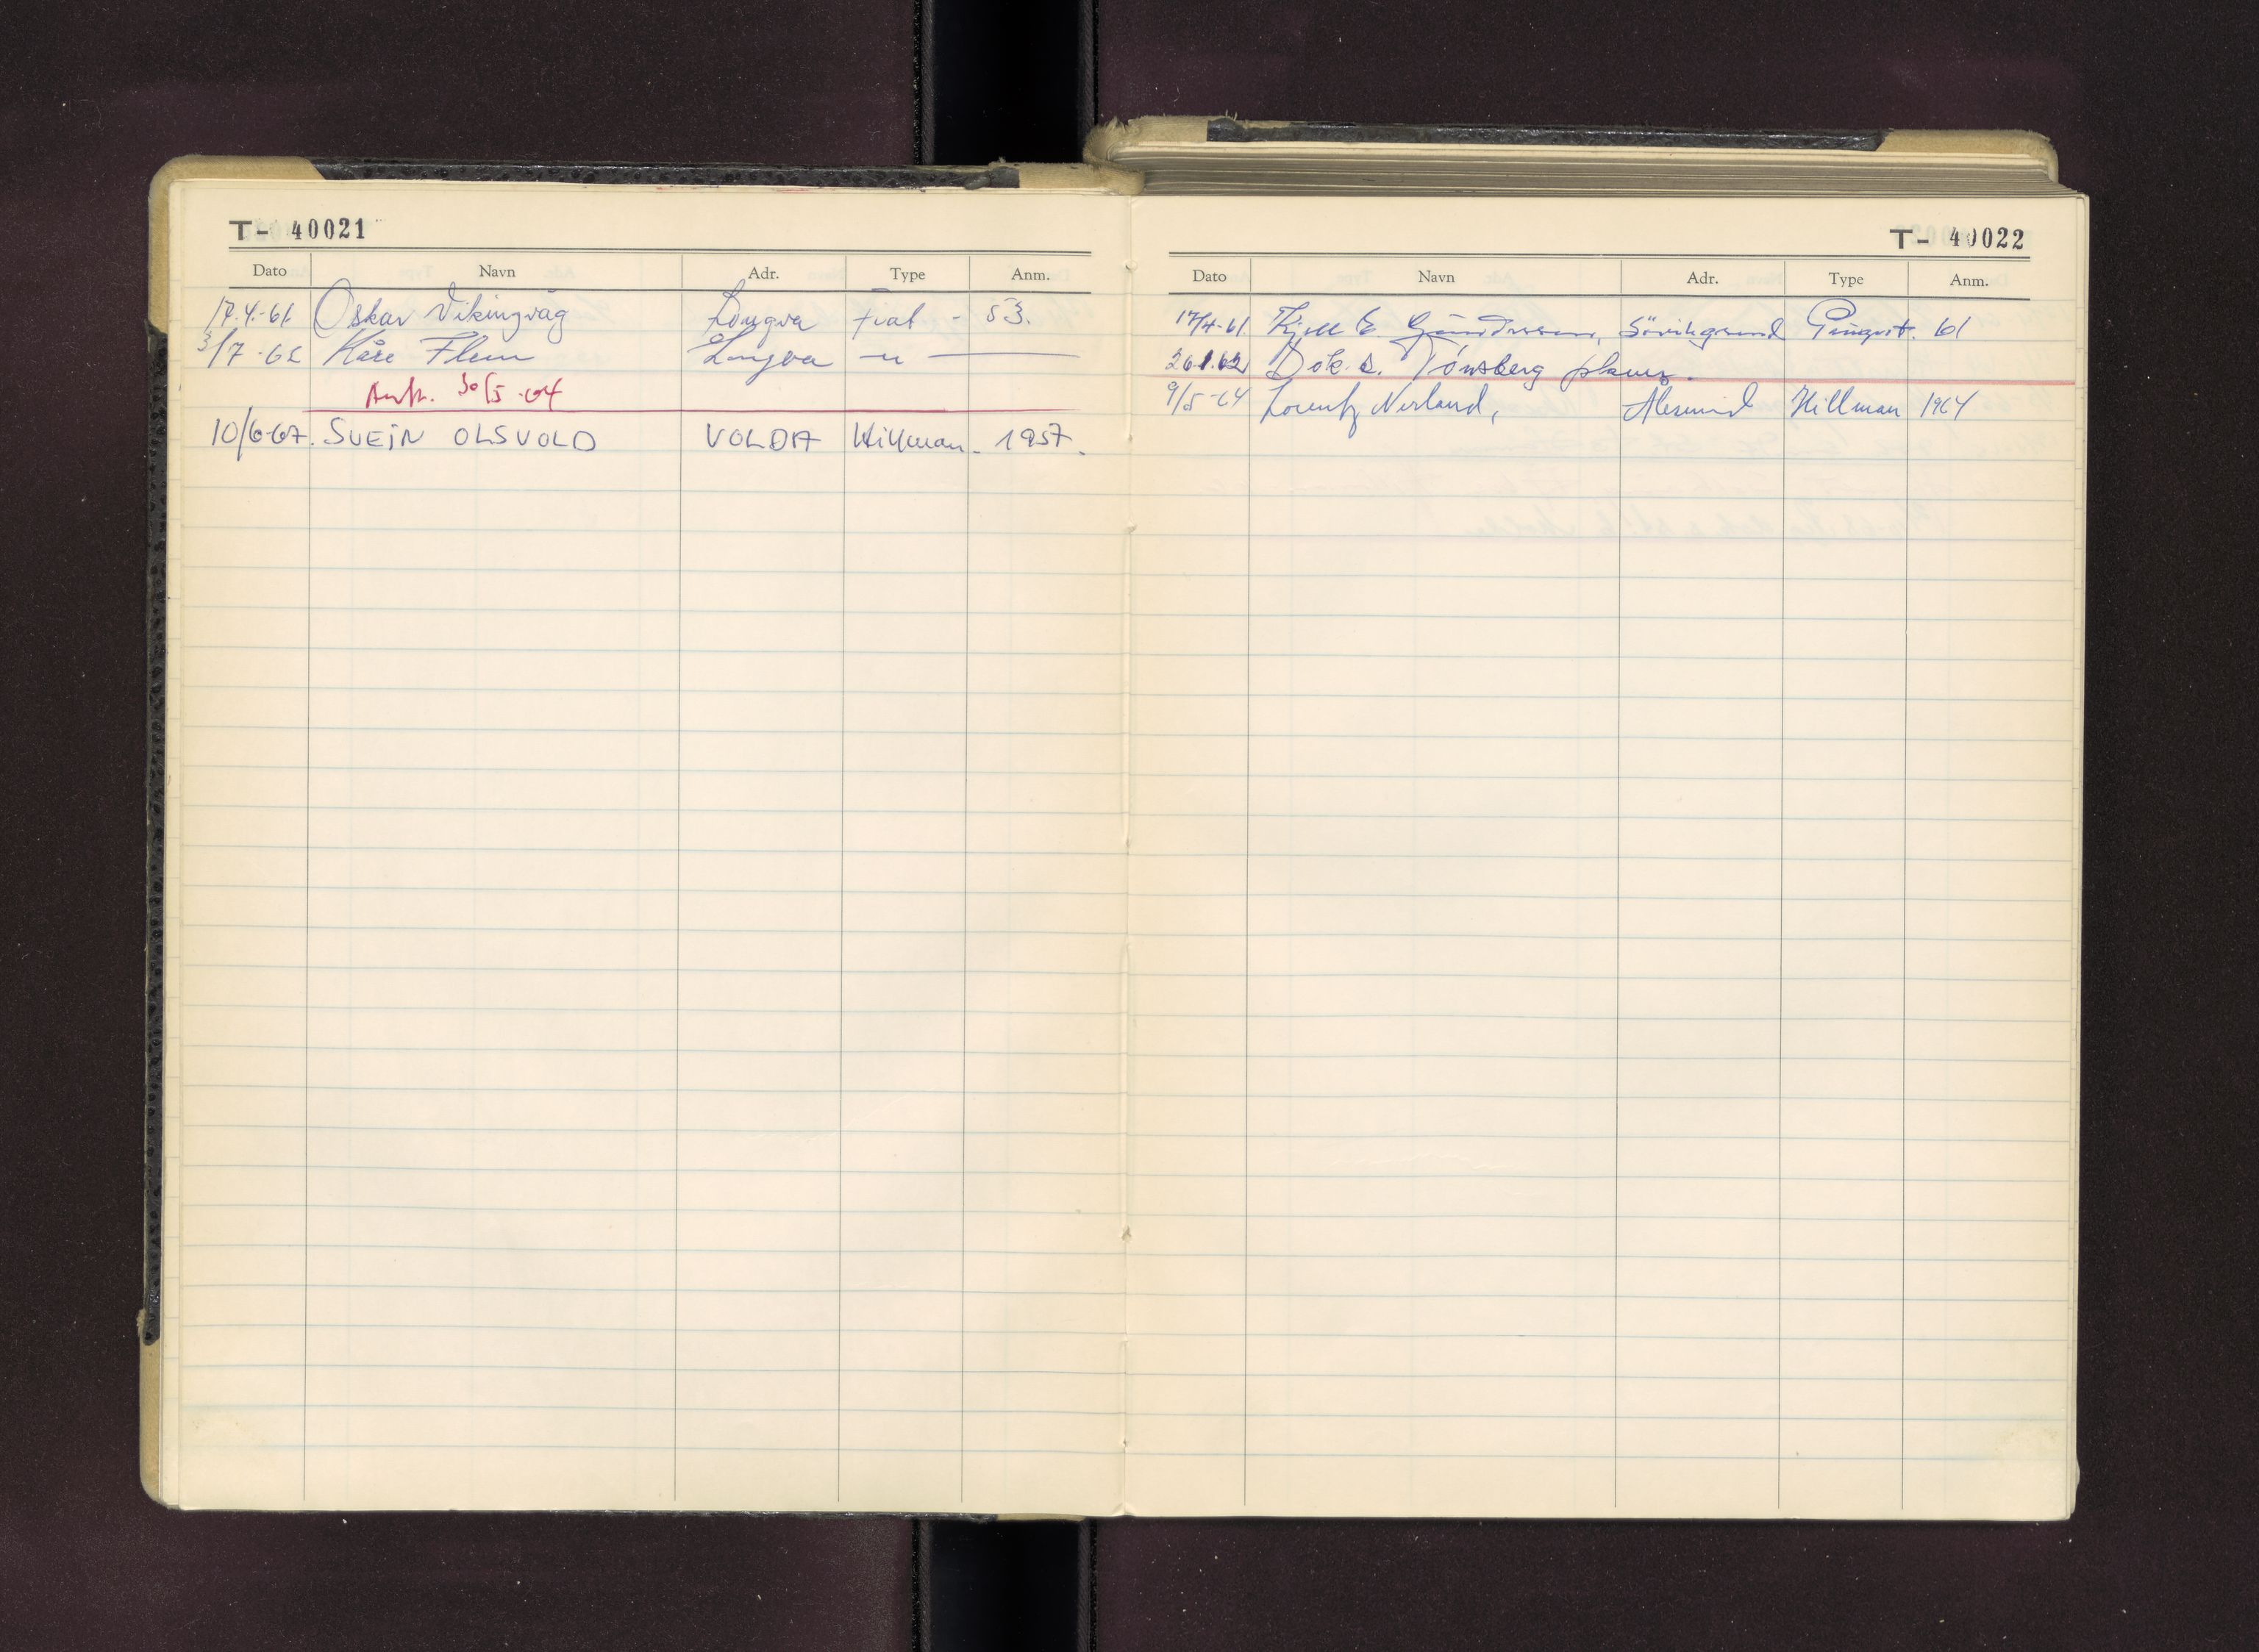 T- 40021
Dato Navn Adr. Type Anm.
17.4.-61 Oskar Vikingvåg Longva Fiat - 53.
3/7-62 Kåre Flem Longva -"-
30/5-64
10/6-67. SVEIN OLSVOLD VOLDA Hillman - 1957.
T- 40022
Dato Navn Adr. Type Anm.
17/4-61 Kjell E. Gundersen, 61
26.1.62 Dok. s. Tønsberg
9/5-64 Lorentz Nerland, Ålesund Hillman 1964